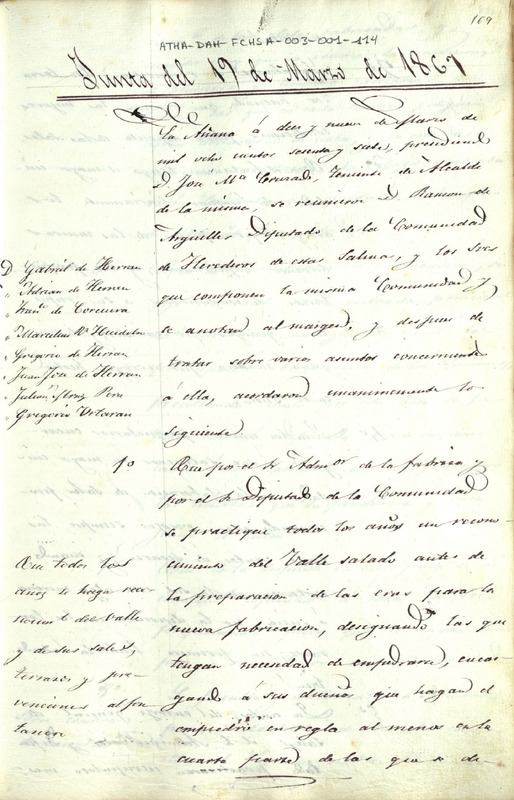 169
ATHA-DAH-FCHSA-003-001-114
Junta del 19 de Marzo de 1867
En
La Añana á diez y nueve de Marzo de
mil ocho cientos sesenta y siete, presidiend
D. José Mª Cruzado, Teniente de Alcalde
de la misma, se reunieron D. Ramon de
Arguiller Diputado de la Comunidad
de Herederos de estas Salinas, y los Sres
que componen la misma Comunidad y
se anotan al margen, y despues de
tratar sobre varios asuntos concerniente
á ella, acordaron unanimemente lo
siguiente
D. Gabriel de Herran
" Adrian de Herran
" Franº de Corcuera
" Marcelino Mª Huidobro
" Gregorio de Herran
" Juan Jose de Herran
" Julian Perez
" Gregorio Urtaran
1º Que por el Sr Admor de la fabrica y
por el Sr Diputado de la Comunidad
se practique todos los años un recono-
cimiento del Valle salado antes de
la preparacion de las eras para la
nueva fabricacion, designando las que
tengan necesidad de empedrarse, encar-
gando á sus dueños que hagan el
empiedro en regla al menos en la
cuarta parte de las que se de
Que todos los
años se haga reco-
nocimtº del Valle
y de sus sales,
terrazos y pre-
venciones al fon-
tanero